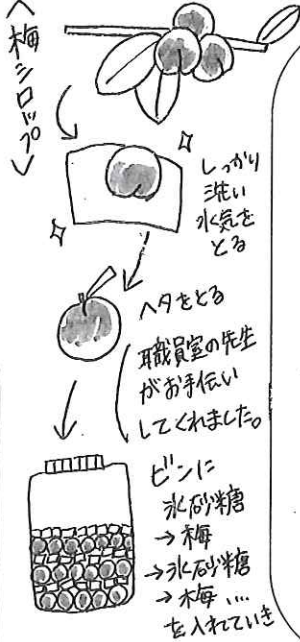 <梅シロップ>
しっかり
洗い
水気を
とる
ヘタをとる
職員室の先生
がお手伝い
してくれました。
ビンに
氷砂糖
→梅
→氷砂糖
→梅....
を入れていき